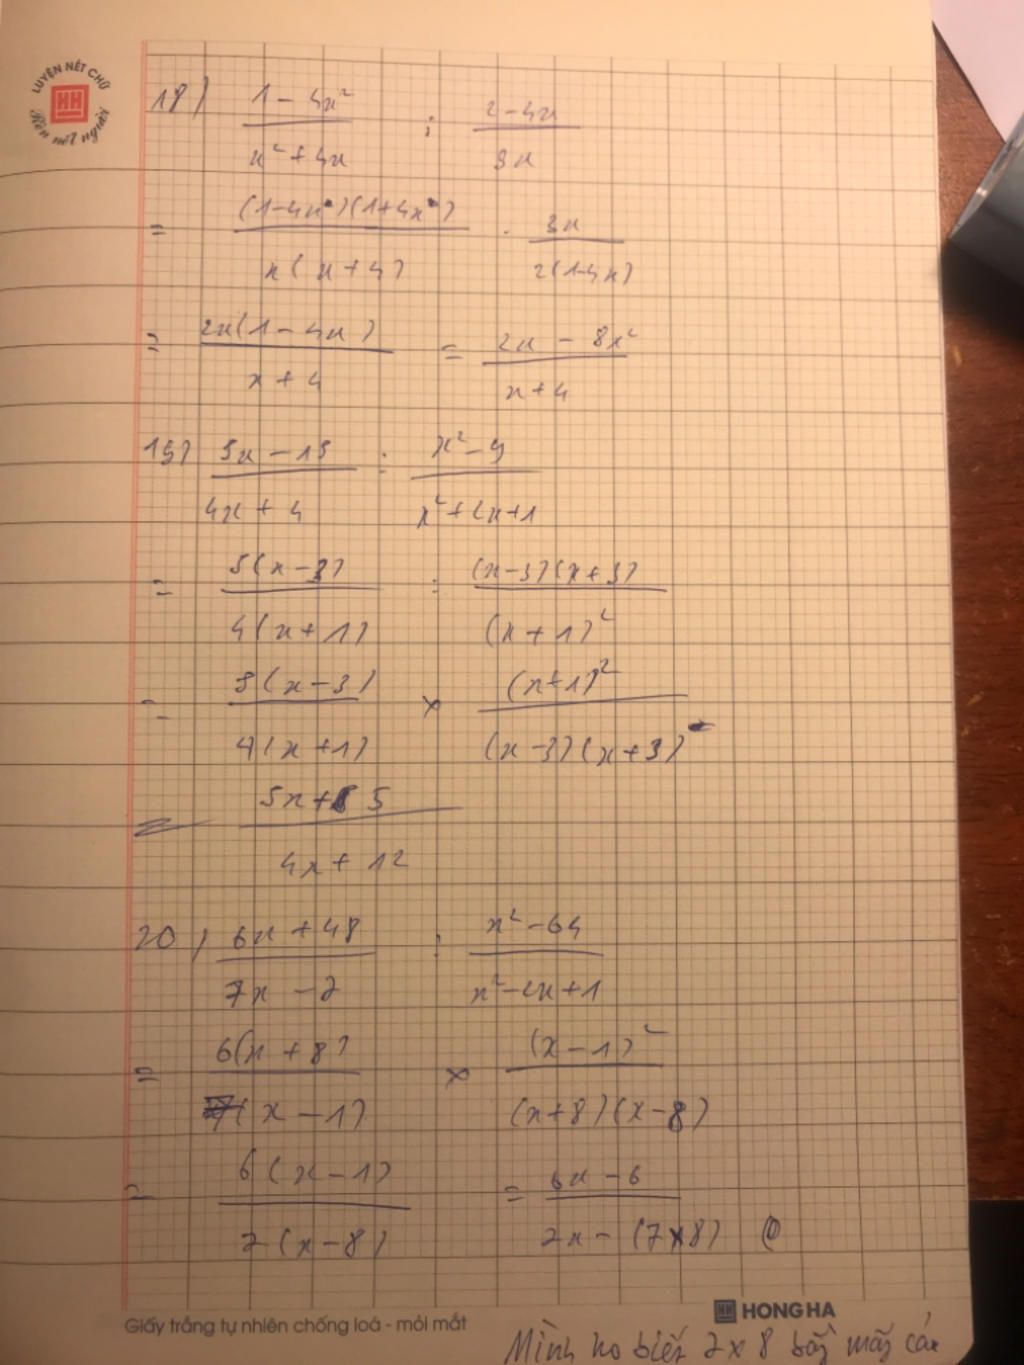 LUYỆN NÉT CHỮ
HH
Rèn nết người
18) (1 - 4x²)/(x² + 4x) : (2 - 4x)/(3x)
= ((1-4x)(1+4x))/(x(x+4)) . (3x)/(2(1-4x))
= (2x(1 - 4x))/(x + 4) = (2x - 8x²)/(x+4)
19) (5x - 15)/(4x + 4) : (x² - 9)/(x² + 2x + 1)
= (5(x - 3))/(4(x + 1)) : ((x-3)(x+3))/((x + 1)²)
= (5(x - 3))/(4(x + 1)) × ((x+1)²)/((x-3)(x+3))
= (5x + 5)/(4x + 12)
20) (6x + 48)/(7x - 7) : (x² - 64)/(x² - 2x + 1)
= (6(x + 8))/(7(x - 1)) × ((x - 1)²)/((x+8)(x-8))
= (6(x - 1))/(7(x - 8)) = (6x - 6)/(7x - (7×8))
Giấy trắng tự nhiên chống loá - mỏi mắt
HONG HA
Mình ko biết 7 × 8 bằng mấy